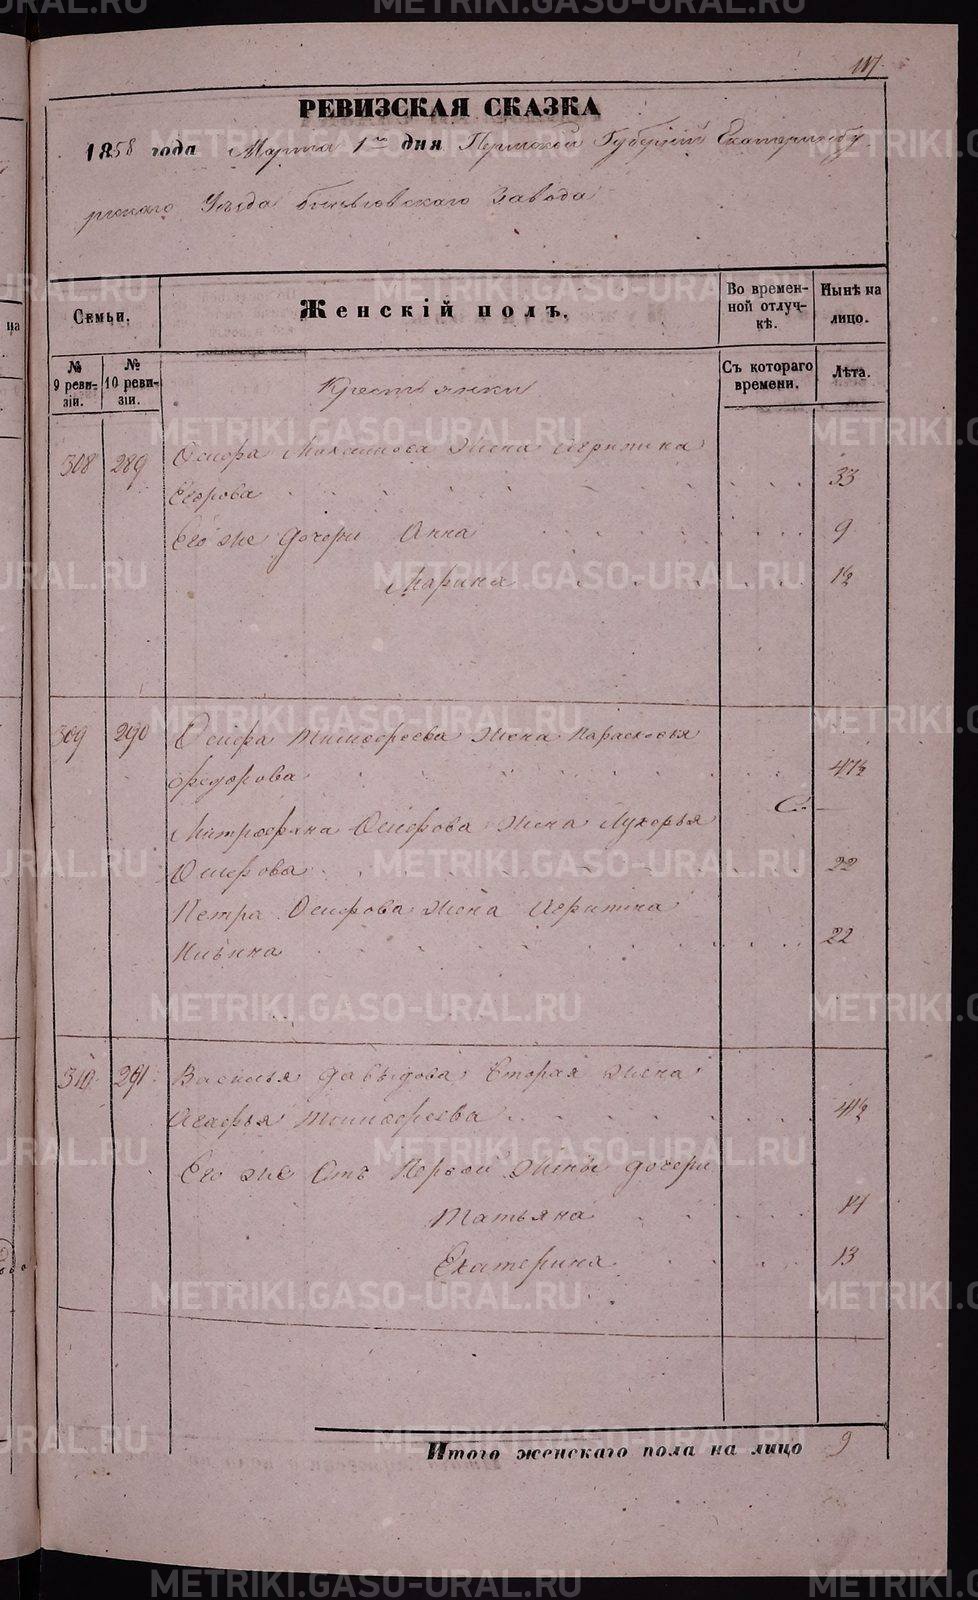 117.
РЕВИЗСКАЯ СКАЗКА
1858 года Марта 1го дня Пермской Губернiй Екатеринбу
ргскаго Уезда Завода
Семьи.
Женскій полъ.
Во времен-
ной отлуч-
кѣ.
Нынѣ на
лицо.
№
9 реви-
зіи.
№
10 реви-
зіи.
Съ котораго
времени.
Лѣта.
Крестьянки
308 289 Осифа Жена Агрипина
Егорова 33
Его же дочери Анна 9
Марина 1½
309 290 Осифа Тимофеева Жена Парасковья
Федорова 47½
Митрофана Осифова Жена Лукерья
Осифова 22
Петра Осифова Жена Агрипина
Ильина 22
310. 291. Василья Давыдова Вторая Жена
Агафья Тимофеева 41½
Его же Отъ Первой Жены дочери
Татьяна 14
Екатерина 13
Итого женскаго пола на лицо 9
METRIKI.GASO-URAL.RU